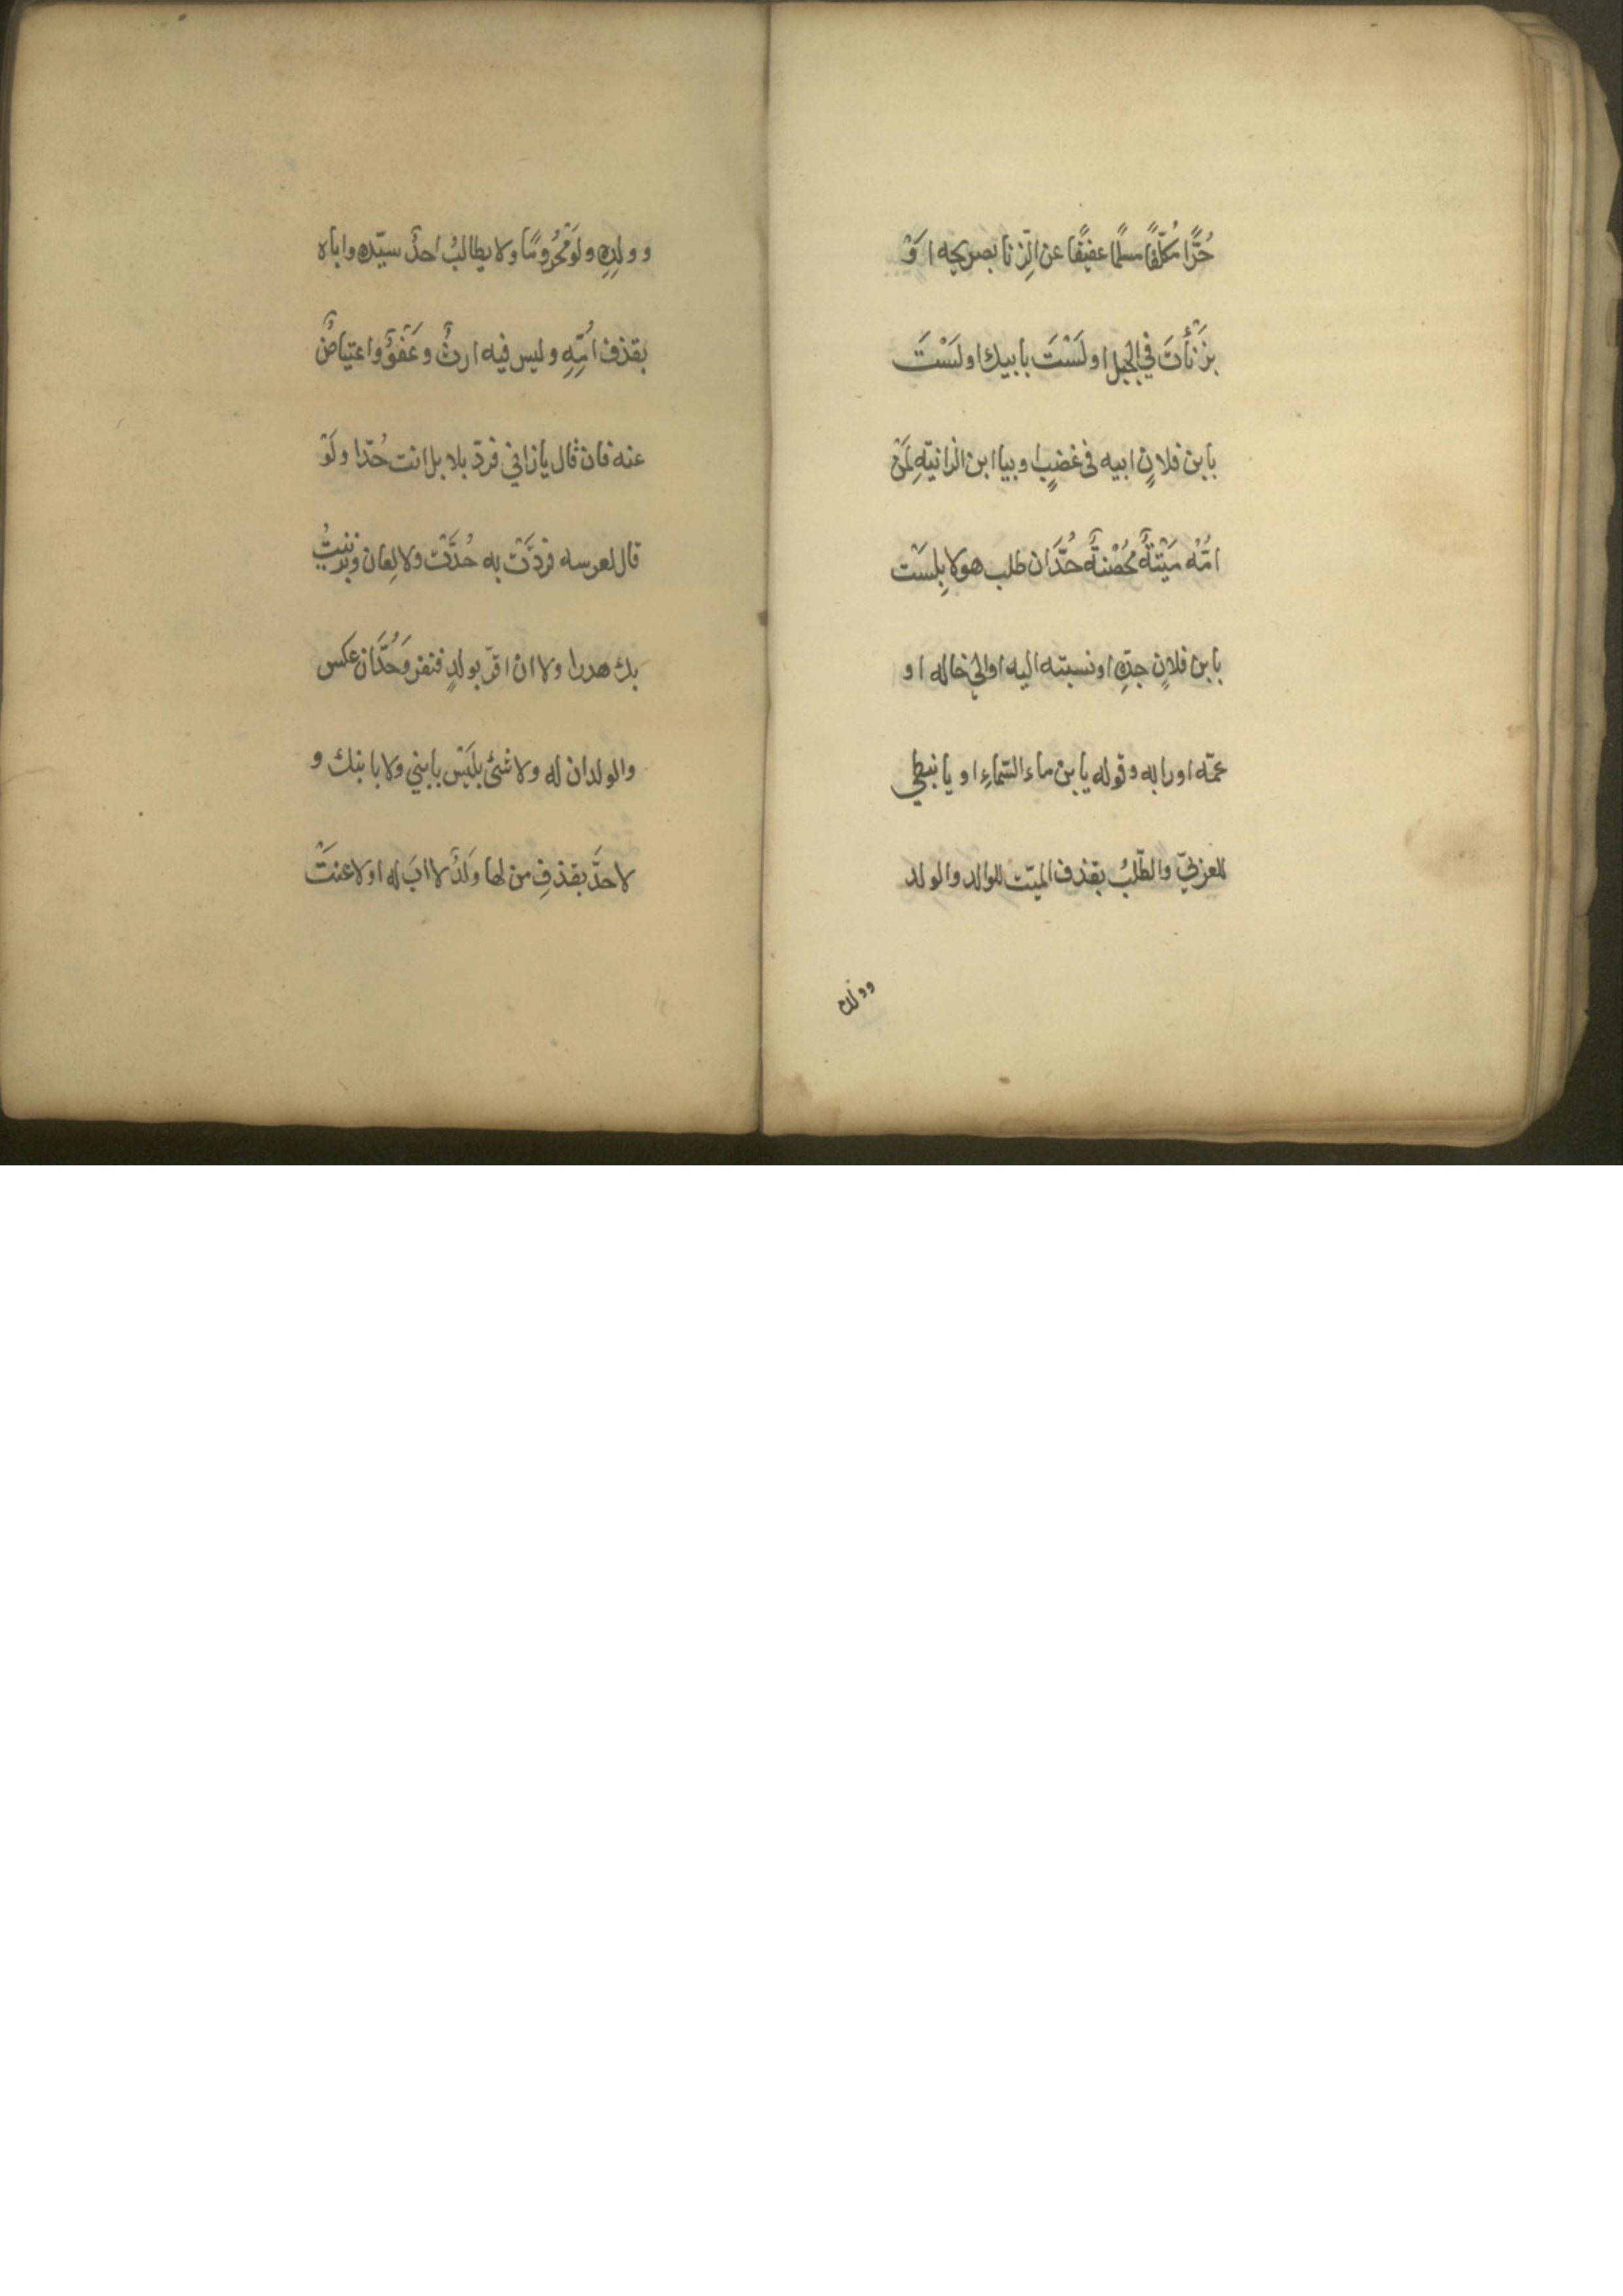 حُرًّا مُكلّفًا مسلمًا عفيفًا عن الزِّنا بصريحه اوَْ
بزَنْأتَ في الجبل او لَسْتَ بابيك او لَسْتَ
بابن فلانٍ ابيه فى غضبٍ او بيا ابن الزانيّهِ لمَنْ
امُّه ميْتةٌ مُحْصَنةٌ حُدَّ ان طلب هو لا بِلسَتَ
بابن فلانٍ جدِّهِ او نسبته اليه او الي خاله او
عمّه او رابه وقوله يا بن ماء السّماءِ او يا نبطي
للعربيّ والطّلبُ بقذف الميّت للوالد والولد
وولده
وولدِهِ ولَوْ مَحْرُومًا ولا يطالبُ احدٌ سيّده واباه
بقذف امِّهِ وليس فيه ارثٌ وعَفْوٌ واعتياضٌ
عنه فان قال يا زاني فردّ بلا بل انت حُدّا ولَوْ
قال لعرسه فردَّتْ به حُدَّتْ ولا لِعَان وبزنيتُ
بك هدرا ولاان اقرّ بولدٍ فنفىَ وَحُدَّ ان عكس
والولدان له ولا شئ بليَسْ بابني ولا بابنك و
لا حدَّ بقذفِ من لها وَلدٌ لا ابَ له او لاعنَتْ